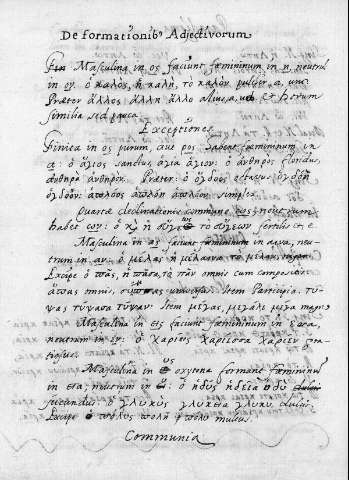 De formationib' Adjectivorum
Masculina in ος faciunt fæmininum in η, neutrum
in ον. ὁ καλὸς, ἡ καλὴ, τὸ καλὸν pulcer, a, um.
Præter ἄλλος ἄλλη ἄλλο alius, a, ud et horum
similia sed pauca.
Exceptiones
Finita in ος purum, aut ρος habent fæmininum in
α: ὁ ἅγιος sanctus, ἁγία ἅγιον: ὁ ἀνθηρὸς floridus,
ἀνθηρὰ ἀνθηρὸν. Præter: ὁ ὄγδοος octavus ὀγδόη
ὄγδοον: ἁπλόος ἁπλόη ἁπλόον simplex
quartæ declinationis commune
habet ων: ὁ κ ἡ το fertilis et e.
Masculina in ας faciunt fæmininum in αινα, neu-
trum in αν. ὁ μέλας ἡ μέλαινα τὸ μέλαν,
Excipe ὁ πᾶς, ἡ πᾶσα, τὸ πᾶν omnis cum compositis
ἅπας omnis, universus. Item Participia. τύ-
ψας τύψασα τύψαν: Item μέγας, μεγάλη μέγα
Masculina in εις faciunt fæmininum in εσσα,
neutrum in εν: ὁ χαρίεις χαρίεσσα χαρίεν gra-
tiosus.
Masculina in υς oxytona formant fæmininum
in εια; neutrum in υ: ὁ ἡδὺς ἡδεῖα ἡδὺ
jucundus: ὁ γλυκὺς γλυκεῖα γλυκὺ dulcis
Excipe ὁ πολὺς πολλὴ πολὺ multus.
Communia